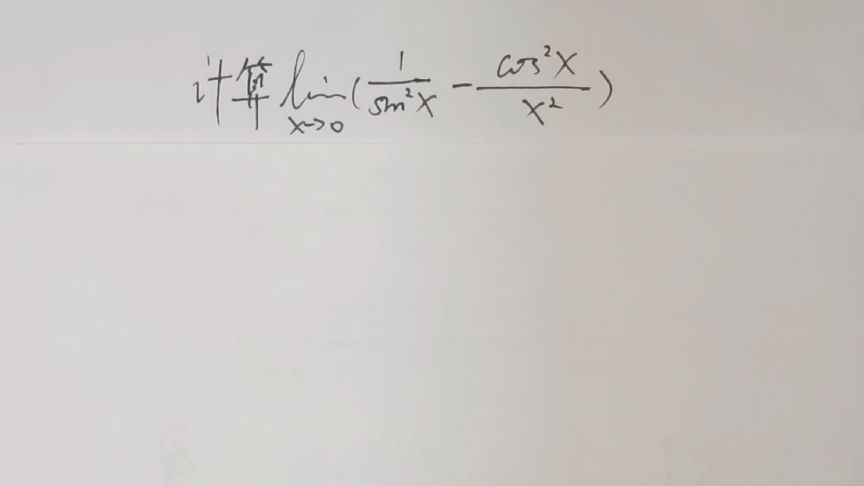 计算 lim_{x→0} (1/sin²x - cos²x/x²)